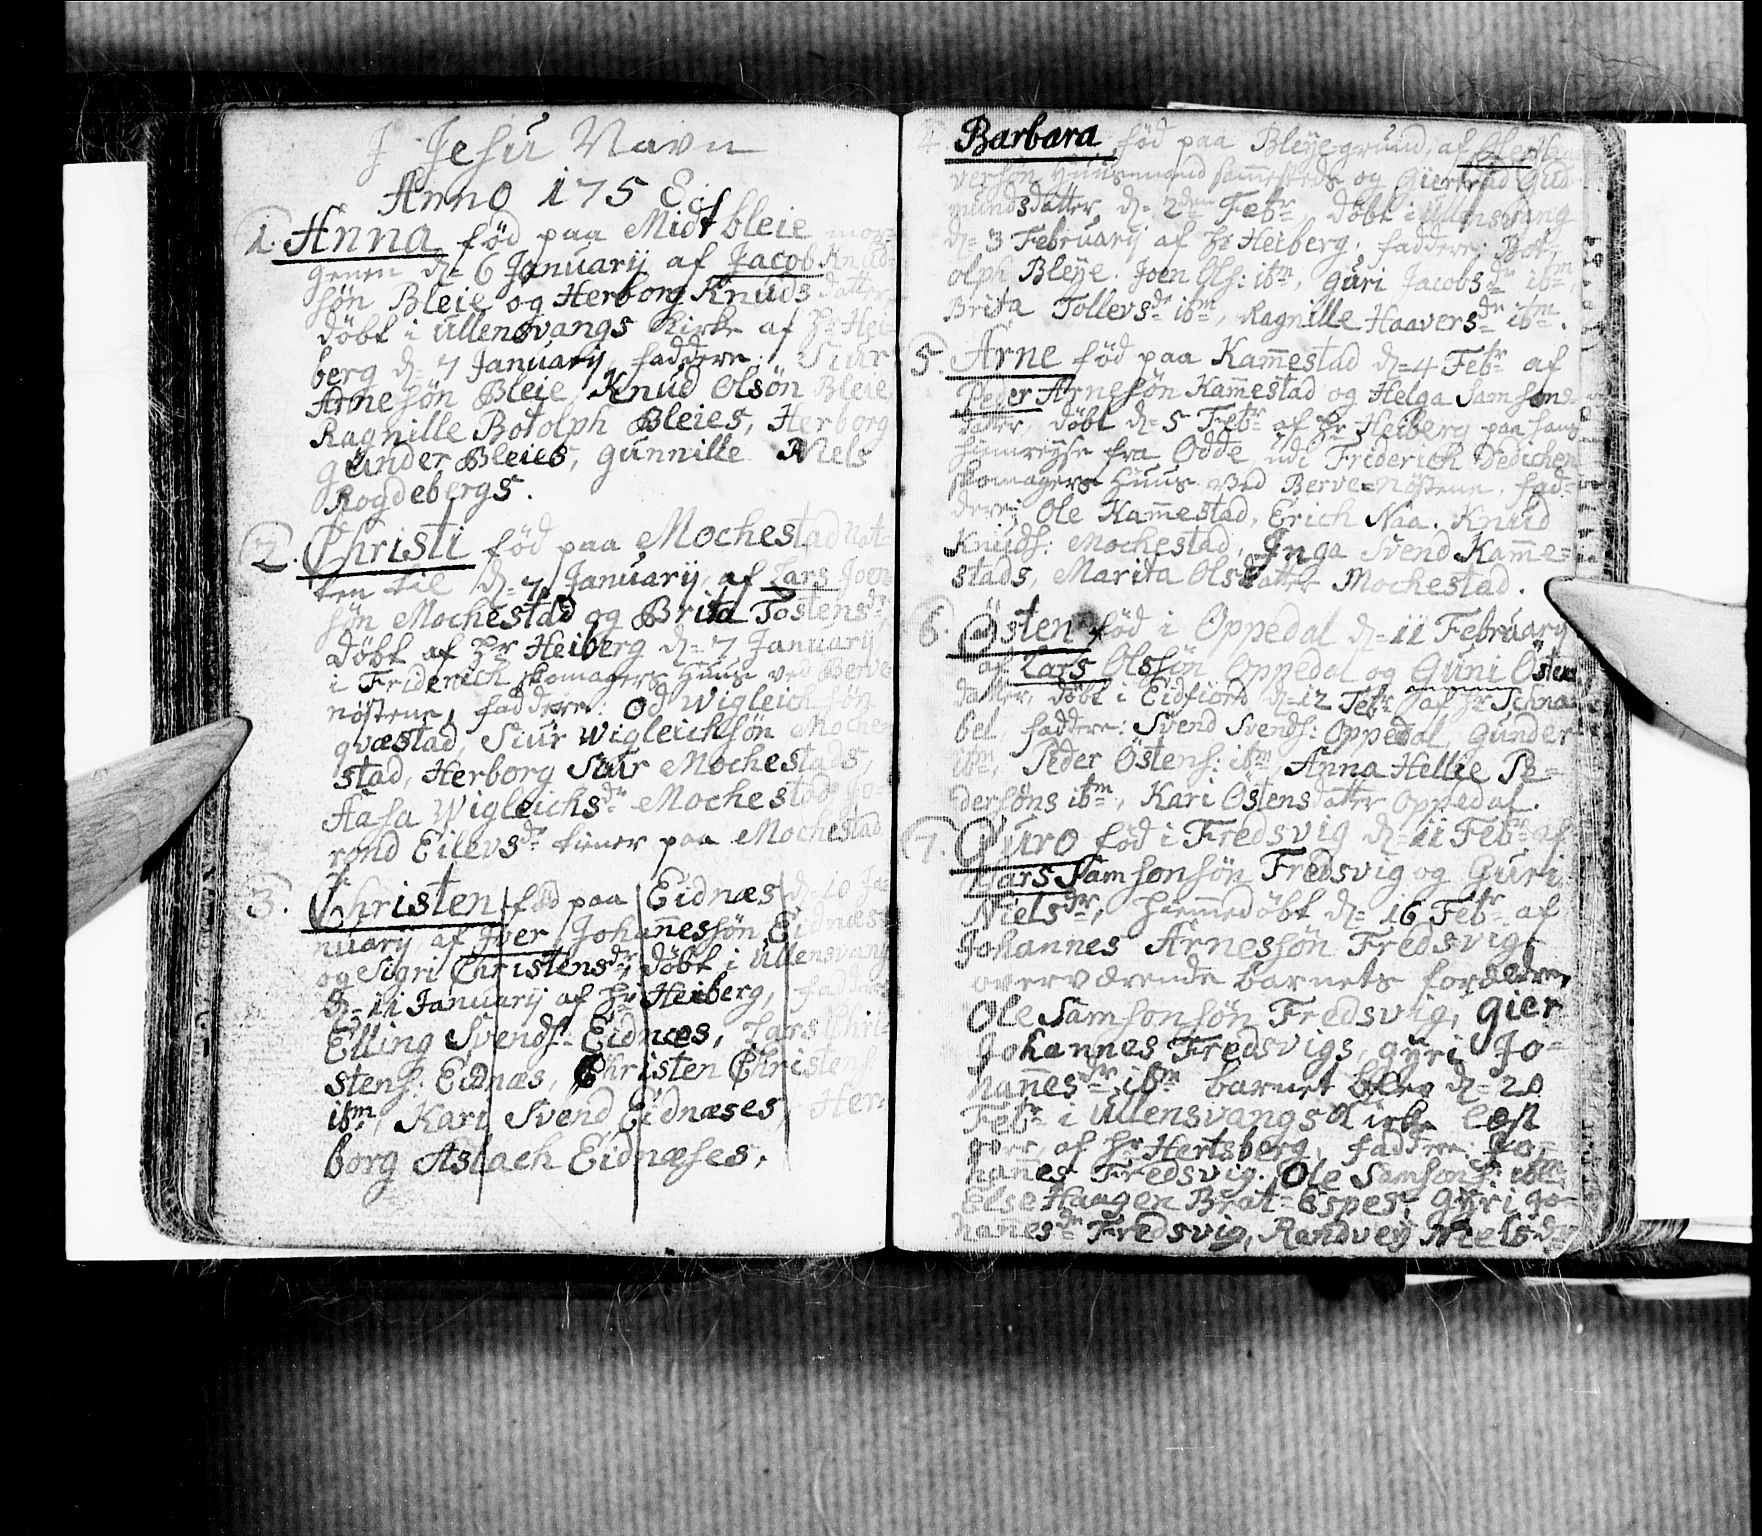 I Jesu Navn
Anno 175
1. Anna fød paa Midtbleie mor-
genen d= 6 Januarij af Jacob Knud-
søn Bleie og Herborg Knuds datter
døbt i Ullensvangs Kirke af Hr Hei-
berg d= 7 Januarij, faddere: Siur
Arnesøn Bleie, Knud Olsøn Bleie
Ragnille Botolph Bleies, Herborg
Gunder Bleies, Gunnille Niels
Rogdebergs.
2. Christi fød paa Mochestad Nat-
ten til d= 7 Januarij, af Lars Joen
søn Mochestad og Brita Tostensdr
døbt af Hr Heiberg d= 7 Januarij
i Friderich skomagers Huus ved Berve
nøstene, faddere: Od Wigleich søn
qvæstad, Siur Wigleichsøn Moche
stad, Herborg Siur Mochestads,
Aasa Wigleichsdr Mochestad Jo-
rond Eilevsdr tiener paa Mochestad
3. Christen fød paa Eidnæs d= 10 Ja
nuarij af Iver Johannessøn Eidnæs
og Sigri Christensdr, døbt i Ullensvang
d= 11 Januarij af Hr Heiberg, faddere
Elling Svends: Eidnæs, Lars Chri
stens: Eidnæs, Christen Christens
ibm, Kari Svend Eidnæses, Her-
borg Aslach Eidnæses.
4. Barbara fød paa Bleyegrund, af Ole Haa
versøn Huusmand sammesteds og Giertrud Gud
mundsdatter, d= 2den Febr, døbt i Ullensvang
d= 3 Februarij af Hr Heiberg, faddere: Bot-
olph Bleye. Joen Ols: ibm, Guri Jacobsdr ibm,
Brita Tollevsdr ibm, Ragnille Haaversdr ibm.
5. Arne fød paa Kammestad d= 4 Febr af
Peder Arnesøn Kammestad og Helga Samsons
datter, døbt d= 5 Febr af Hr Heiberg paa hans
Hiemreyse fra Odde udi Friderich Dedichen
skomagers Huus ved Berve=nøstene, fad-
dere: Ole Kammestad, Erich Naa. Knud
Knuds: Mochestad, Inga Svend Kamme-
stads, Marita Olsdatter Mochestad.
6. Østen fød i Oppedal d= 11 Februarij
af Lars Olssøn Oppedal og Guni Østens
datter, døbt i Eidfiord d= 12 Febr af Hr Schna
bel, faddere: Svend Svends: Oppedal, Gunder
ibm, Peder Østens: ibm, Anna Hellie Pe-
dersøns ibm, Kari Østensdatter Oppedal.
7. Guro fød i Fredsvig d= 11 Febr af
Lars Samsonsøn Fredsvig og Guri
Nielsdr, Hiemmedøbt d= 16 Febr af
Johannes Arnessøn Fredsvig,
overværende barnets forældre,
Ole Samsonsøn Fredsvig, Gier
Johannes Fredsvigs, Gyri Jo-
hannesdr ibm barnet blev d= 20
Febr i Ullensvangs Kirke læst
over af Hr Hertsberg, faddere: Jo-
hannes Fredsvig. Ole Samsons: ibm,
Else Haagen Brat=Espes, Gyri Jo-
hannesdr Fredsvig, Randvey Nielsdr